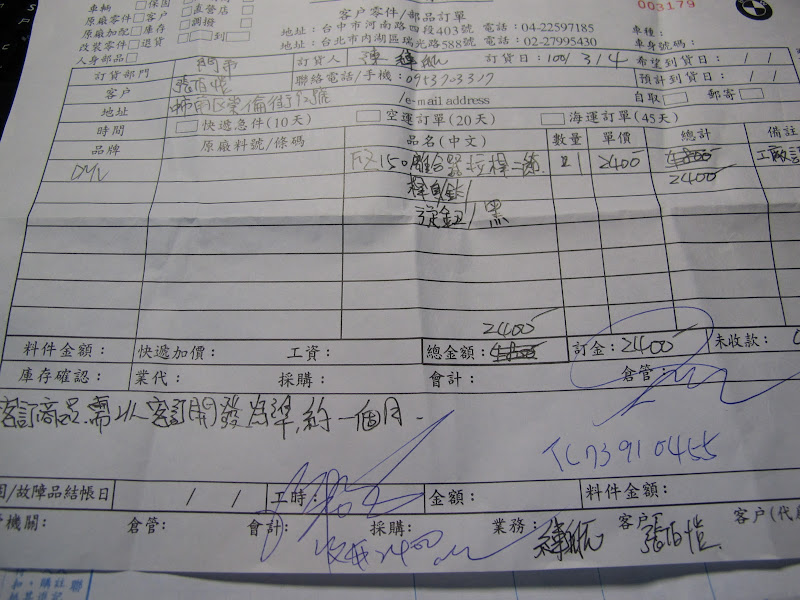 客户零件/部品訂單
003179
車輛 □保固
原廠零件 □客户 □直營店
原廠加配 □庫存 □調撥
改裝零件 □退貨 □ 到 □
人身部品□
地址：台中市河南路四段403號 電話：04-22597185
地址：台北市內湖區瑞光路588號 電話：02-27995430
車種：
車身號碼：
訂貨部門 門市 訂貨人 訂貨日：100/ 3/4 希望到貨日： / /
客户 張佰愷 聯絡電話/手機：0953703317 預計到貨日： / /
地址 /e-mail address 自取 □ 郵寄 □
時間 □快遞急件(10天) □空運訂單(20天) □海運訂單(45天)
品牌 原廠料號/條碼 品名(中文) 數量 單價 總計 備註
DMV FZ150離合器拉桿二 1 2400 4800 工廠
2400
黑
2400
料件金額： 快遞加價： 工資： 總金額：4800 訂金：2400 未收款：
庫存確認： 業代： 採購： 會計： 倉管：
客訂商品需以客訂開發為準,約一個月.
TC73910455
/故障品結帳日 / / 工時： 金額： 料件金額：
機關： 倉管： 會計： 採購： 業務： 客户 張佰愷 客户(代
2400